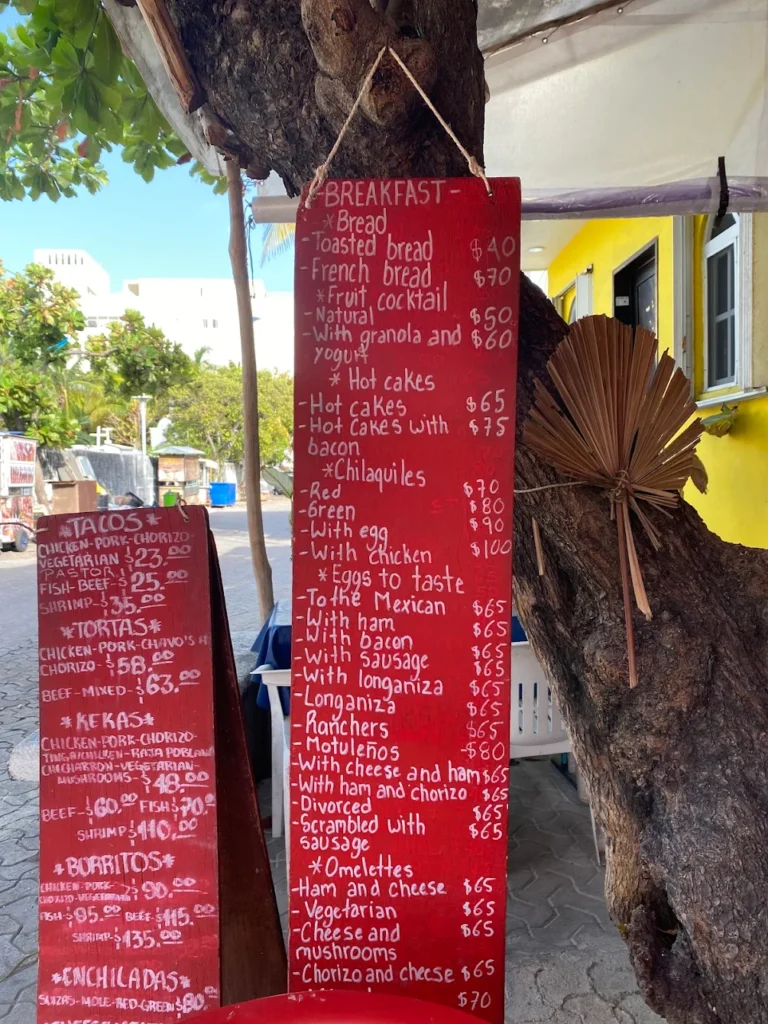 *TACOS*
CHICKEN-PORK-CHORIZO-
VEGETARIAN $23.00
PASTOR
FISH-BEEF-$25.00
SHRIMP-$35.00
*TORTAS*
CHICKEN-PORK-CHAVO'S
CHORIZO-$58.00
BEEF-MIXED-$63.00
*KEKAS*
CHICKEN-PORK-CHORIZO-
TINGA/CHICKEN-RAJA POBLAN
CHICHARRON-VEGETARIAN-
MUSHROOMS-$48.00
BEEF-$60.00 FISH$70.0
SHRIMP$110.00
*BORRITOS*
CHICKEN-PORK-
CHORIZO-VEGETARIAN $90.00
FISH-$95.00 BEEF-$115.00
SHRIMP-$135.00
*ENCHILADAS*
SUIZAS-MOLE-RED-GREEN$80.
-BREAKFAST-
*Bread
-Toasted bread $40
-French bread $70
*Fruit cocktail
-Natural $50
-With granola and $60
yogurt
*Hot cakes
-Hot cakes $65
-Hot cakes with $75
bacon
*Chilaquiles
-Red $70
-Green $80
-With egg $90
-With chicken $100
*Eggs to taste
-To the Mexican $65
-With ham $65
-With bacon $65
-With sausage $65
-With longaniza $65
-Longaniza $65
-Ranchers $65
-Motuleños -$80
-With cheese and ham $65
-With ham and chorizo $65
-Divorced $65
-Scrambled with $65
sausage
*Omelettes
-Ham and cheese $65
-Vegetarian $65
-Cheese and $65
mushrooms
-Chorizo and cheese $65
$70